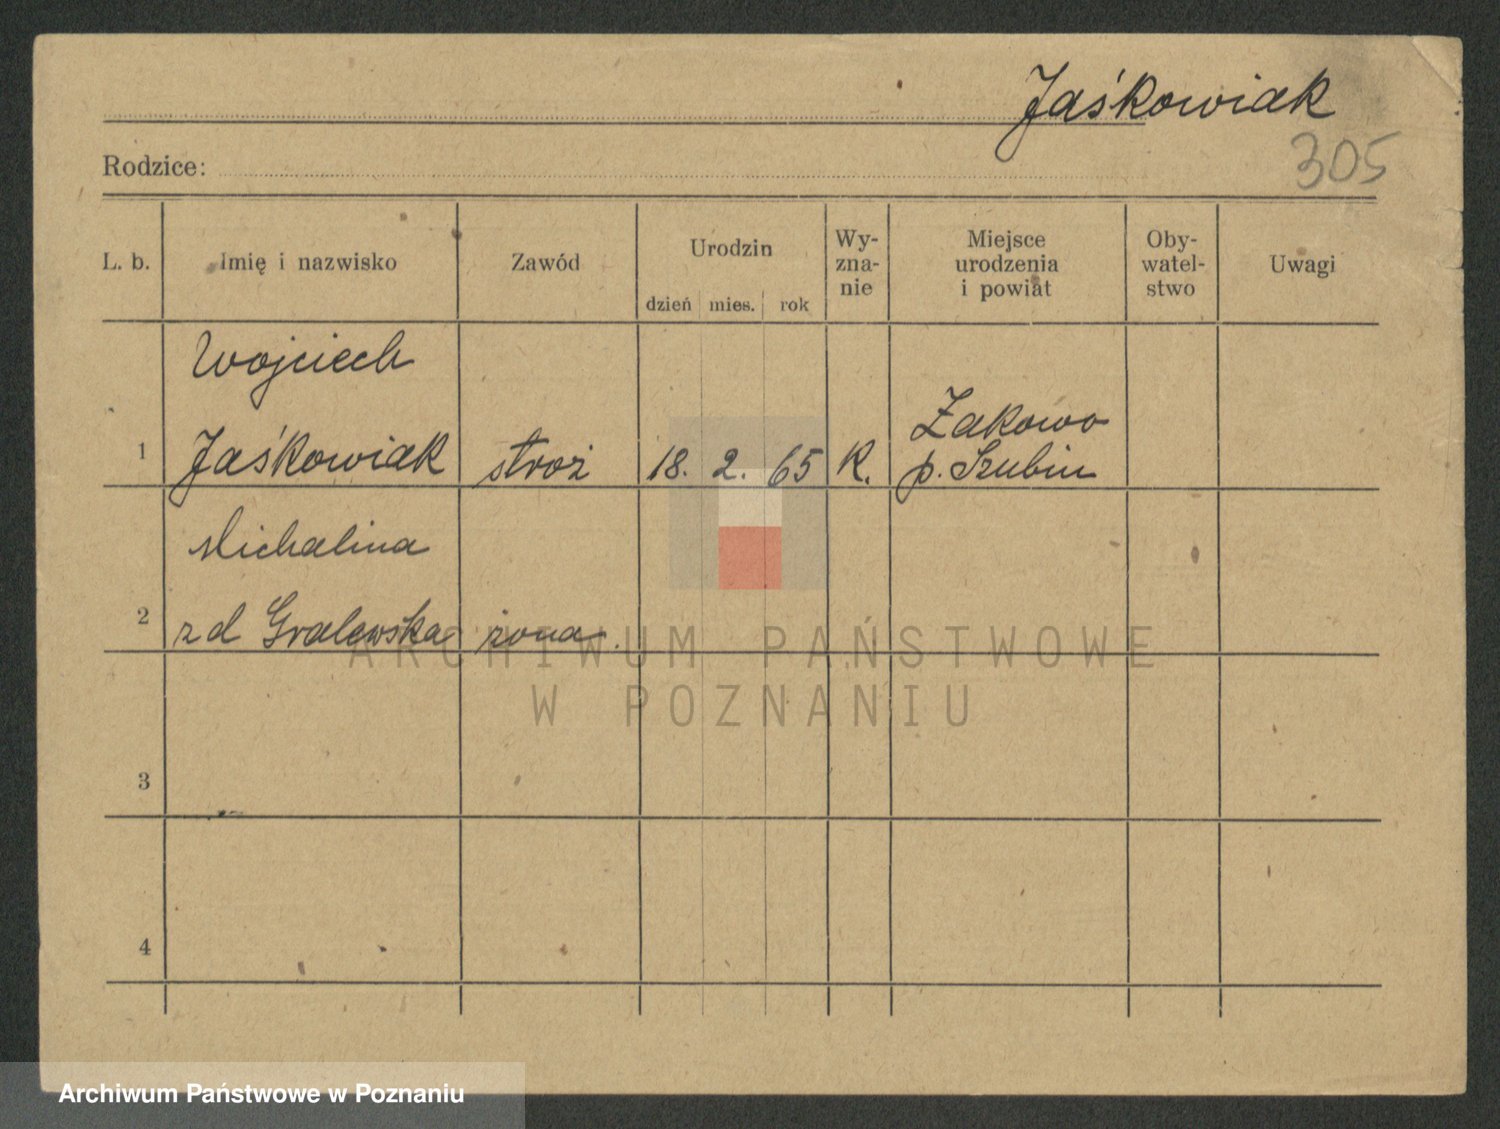 Jaśkowiak
305
Rodzice:
L. b. Imię i nazwisko Zawód Urodzin Wy-zna-nie Miejsce urodzenia i powiat Oby-watel-stwo Uwagi
dzień mies. rok
Wojciech
1 Jaśkowiak stróż 18. 2. 65 K. Żakowo
p. Szubin
Michalina
2 z d Gralewska żona.
3
4
ARCHIWUM PAŃSTWOWE
W POZNANIU
Archiwum Państwowe w Poznaniu